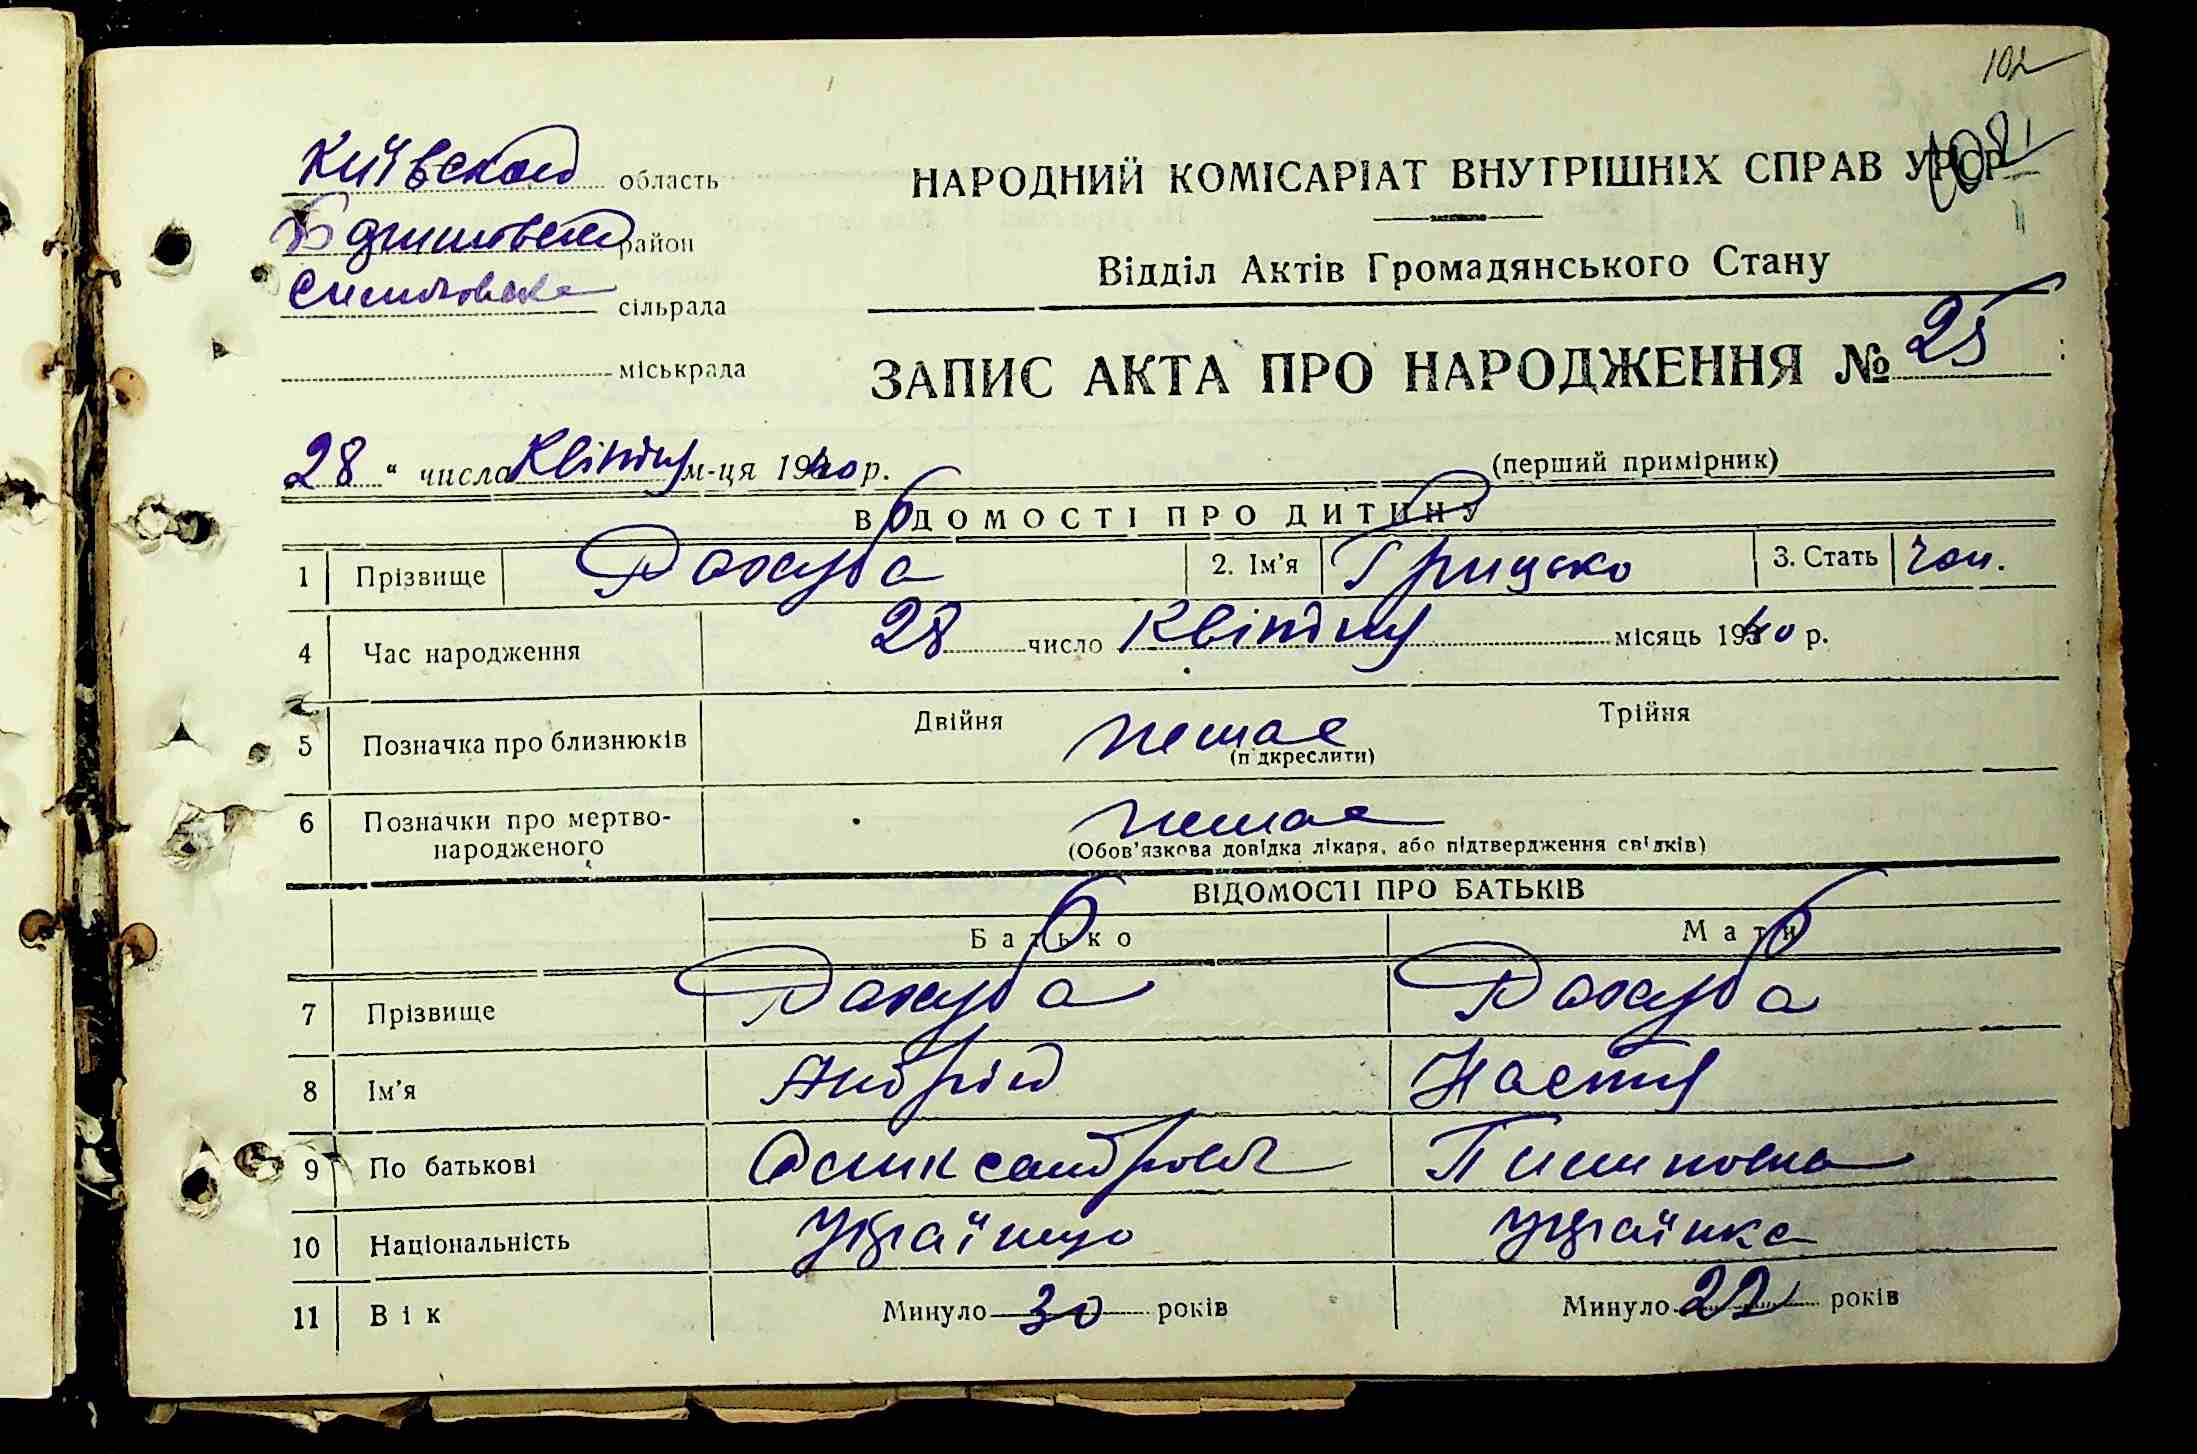 102
Київської область
район
сільрада
міськрада
НАРОДНИЙ КОМІСАРІАТ ВНУТРІШНІХ СПРАВ УРСР
Відділ Актів Громадянського Стану
ЗАПИС АКТА ПРО НАРОДЖЕННЯ № 25
28 " числа Квітня м-ця 1940 р.
(перший примірник)
ВІДОМОСТІ ПРО ДИТИНУ
1 Прізвище Рахуба 2. Ім'я Грицько 3. Стать чол.
4 Час народження 28 число Квітня місяць 1940 р.
5 Позначка про близнюків Двійня немає Трійня
(підкреслити)
6 Позначки про мертво-
народженого немає
(Обов'язкова довідка лікаря, або підтвердження свідків)
ВІДОМОСТІ ПРО БАТЬКІВ
Батько Мати
7 Прізвище Рахуба Рахуба
8 Ім'я Андрій Настя
9 По батькові
10 Національність Українка
11 Вік Минуло 30 років Минуло 22 років